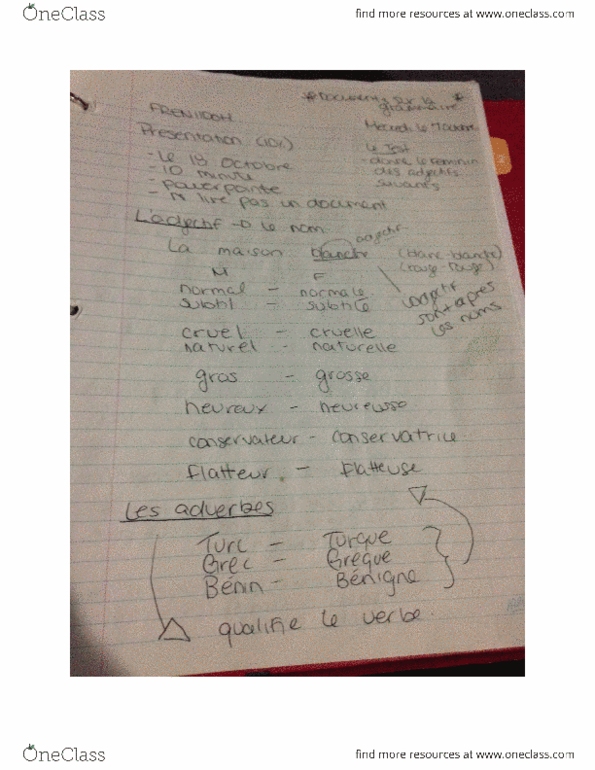 OneClass
find more resources at www.oneclass.com
*Documents sur la grammaire *
FREN1100H
Mercredi le 7 Octobre
Presentation (10%)
- Le 18 Octobre
- 10 minute
- powerpointe
- lire pas un document
Le Test
- donne le feminin
des adjectifs
suivants
L'adjectif → le nom
adjectif
La maison blanche
(blanc-blanche)
(rouge-rouge)
sont apres
les noms
M F
normal - normale
subtil - subtile
cruel - cruelle
naturel - naturelle
gras - grosse
heureux - heureusse
conservateur - conservatrice
flatteur - flatteuse
Les adverbes
Turc - Turque
Grec - Greque
Bénin - Bénigne
qualifie le verbe.
OneClass
find more resources at www.oneclass.com